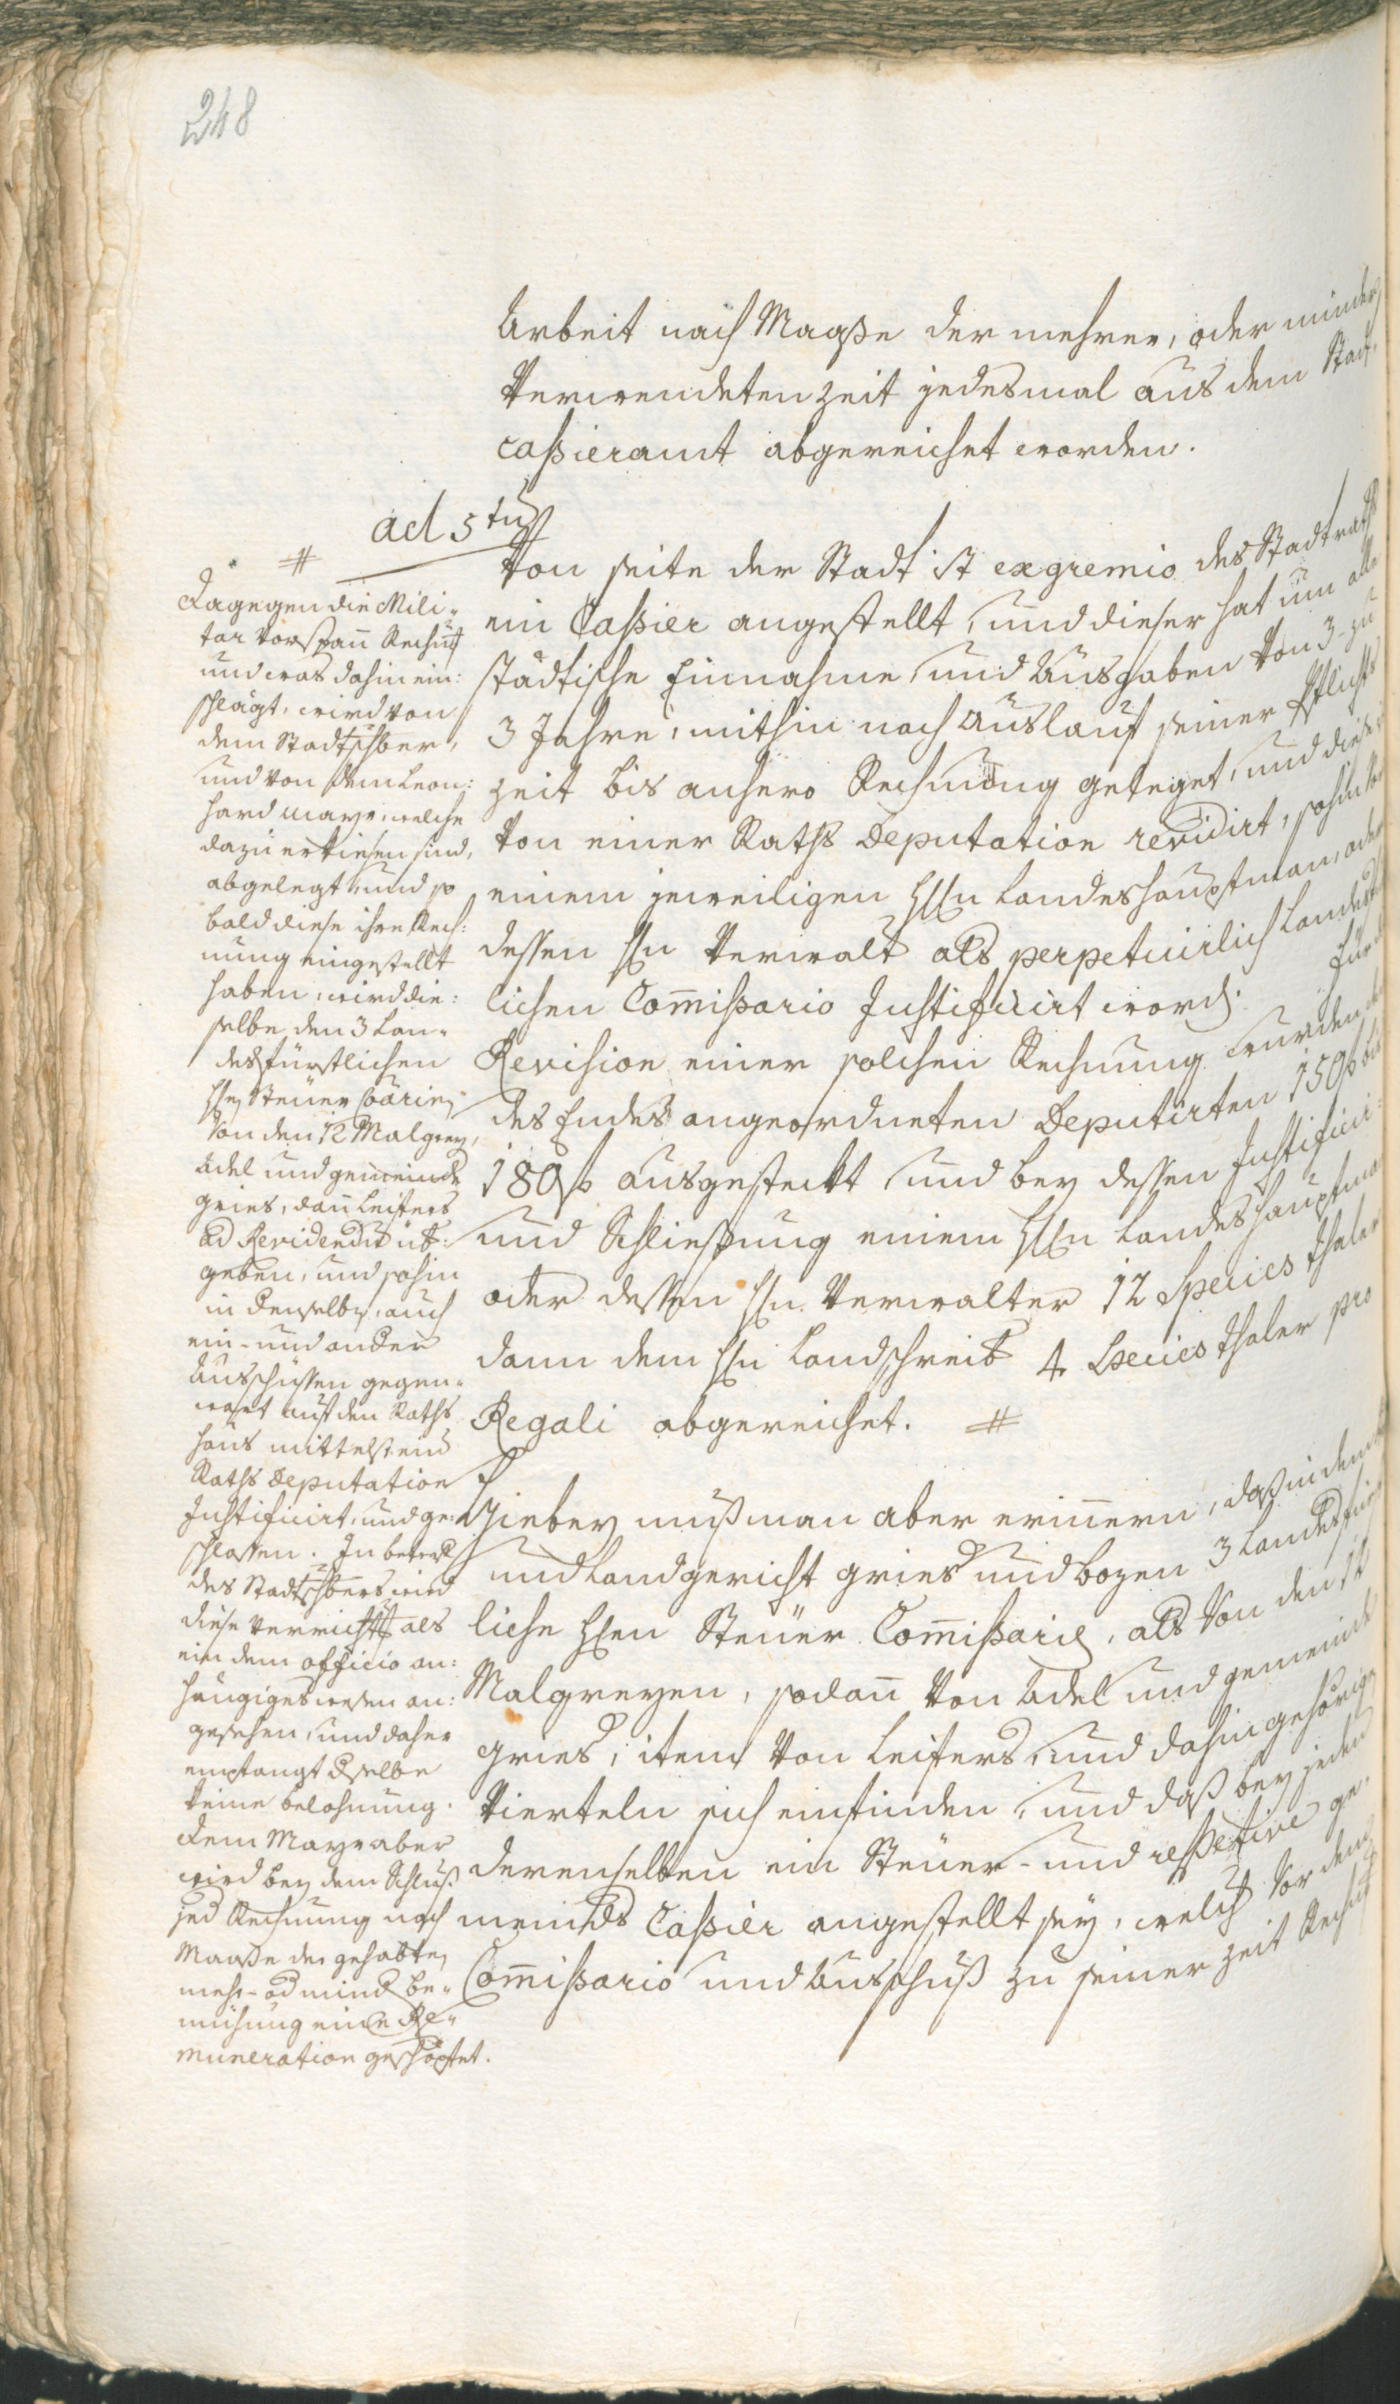 248
Arbeit nach Maaße der mehrer, oder minder
Verwendeten zeit jedesmal aus dem Stadt¬
cassieramt abgereichet worden.
ad 5tum
Von seite der Stadt ist ex gremio des Stadtraths
ein Cassier angestellt, und dieser hat um alle
städtische Einnahme und Ausgaben von 3- zu
3 Jahre, mithin nach Auslauf seiner Pflichts
zeit bis anhero Rechnung geleget, und diese
Von einer Raths Deputation revidirt, sohin
einem jeweiligen Herrn Landeshauptman, oder
dessen Hn Verwalt als perpetuirlich Landesf
lichen Commissario Justificirt word. Für
Revision einer solchen Rechnung wurden
des Endes angeordneten Deputirten 150 bis
180 ausgesteckt und bey dessen Justifici¬
und Schliessung einem Herrn Landeshauptma
oder dessen Hn. Verwalter 12 Species thaler
dann dem Hn Landschreib 4 Species thaler pro
Regali abgereichet. #
Hiebey muß man aber erinnern, daß in dem
und Landgericht gries und bozen 3 Landesfürst
liche Hen Steuer Commissarii, als Von den 12
Malgreyen, sodann Von Adel und gemeinde
gries, item Von Leifers, und dahin gehörig
Vierteln sich einfinden, und daß bey jeden
derenselben ein Steuer- und respective ge¬
meinds Cassier angestellt sey, welch Vor dem
Commissario und Ausschuß zu seiner zeit Rech
#
Dagegen die Mili¬
tar Vorspann Rechnung
und was dahin ein:
schlägt, wird von
dem Stadtschber,
und von dem Leon:
hard Mayr, welche
dazu erkiesen sind,
abgelegt, und so
bald diese ihre Rech:
nung eingestellt
haben, wird die:
selbe den 3 Lan¬
desfürstlichen
Hn Steuer Coarien
Von den 12 Malgrey,
Adel und gemeinde
gries, dann Leifers
ad Revidendum üb:
geben, und sohin
in denselben, auch
ein- und ander
Ausschüssen gegen¬
wart auf dem Raths
haus mittelst eine
Raths Deputation
Justificirt, und ge:
schlossen. In betref
des Stadtschbers wird
diese Verrichtg als
ein dem officio an:
hängiges wesen an:
gesehen, und daher
empfangt dselbe
keine belohnung.
Dem Mayr aber
wird bey dem Schluß
jed Rechnung nach
Maaße der gehabten
mehr- od mind be¬
mühung eine Re¬
muneration geschöpfet.